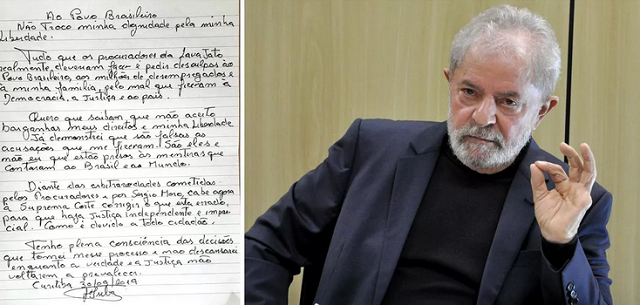 Ao Povo Brasileiro
Não Troco minha dignidade pela minha
Liberdade.
Tudo que os procuradores da Lava Jato
realmente deveriam fazer é pedir desculpas ao
Povo Brasileiro, aos milhões de desempregados e
à minha família, pelo mal que fizeram à
Democracia, à Justiça e ao país.
Quero que saibam que não aceito
barganhar meus direitos e minha Liberdade.
Já demonstrei que são falsas as
acusações que me fizeram. São eles e
não eu que estão presos às mentiras que
contaram ao Brasil e ao Mundo.
Diante das arbitrariedades cometidas
pelos Procuradores e por Sergio Moro, cabe agora
à Suprema Corte corrigir o que está errado,
para que haja Justiça independente e impar
cial. Como é devido a todo cidadão.
Tenho plena consciência das decisões
que tomei nesse processo e não descansarei
enquanto a verdade e a Justiça não
voltarem a prevalecer.
Curitiba 30/09/2019